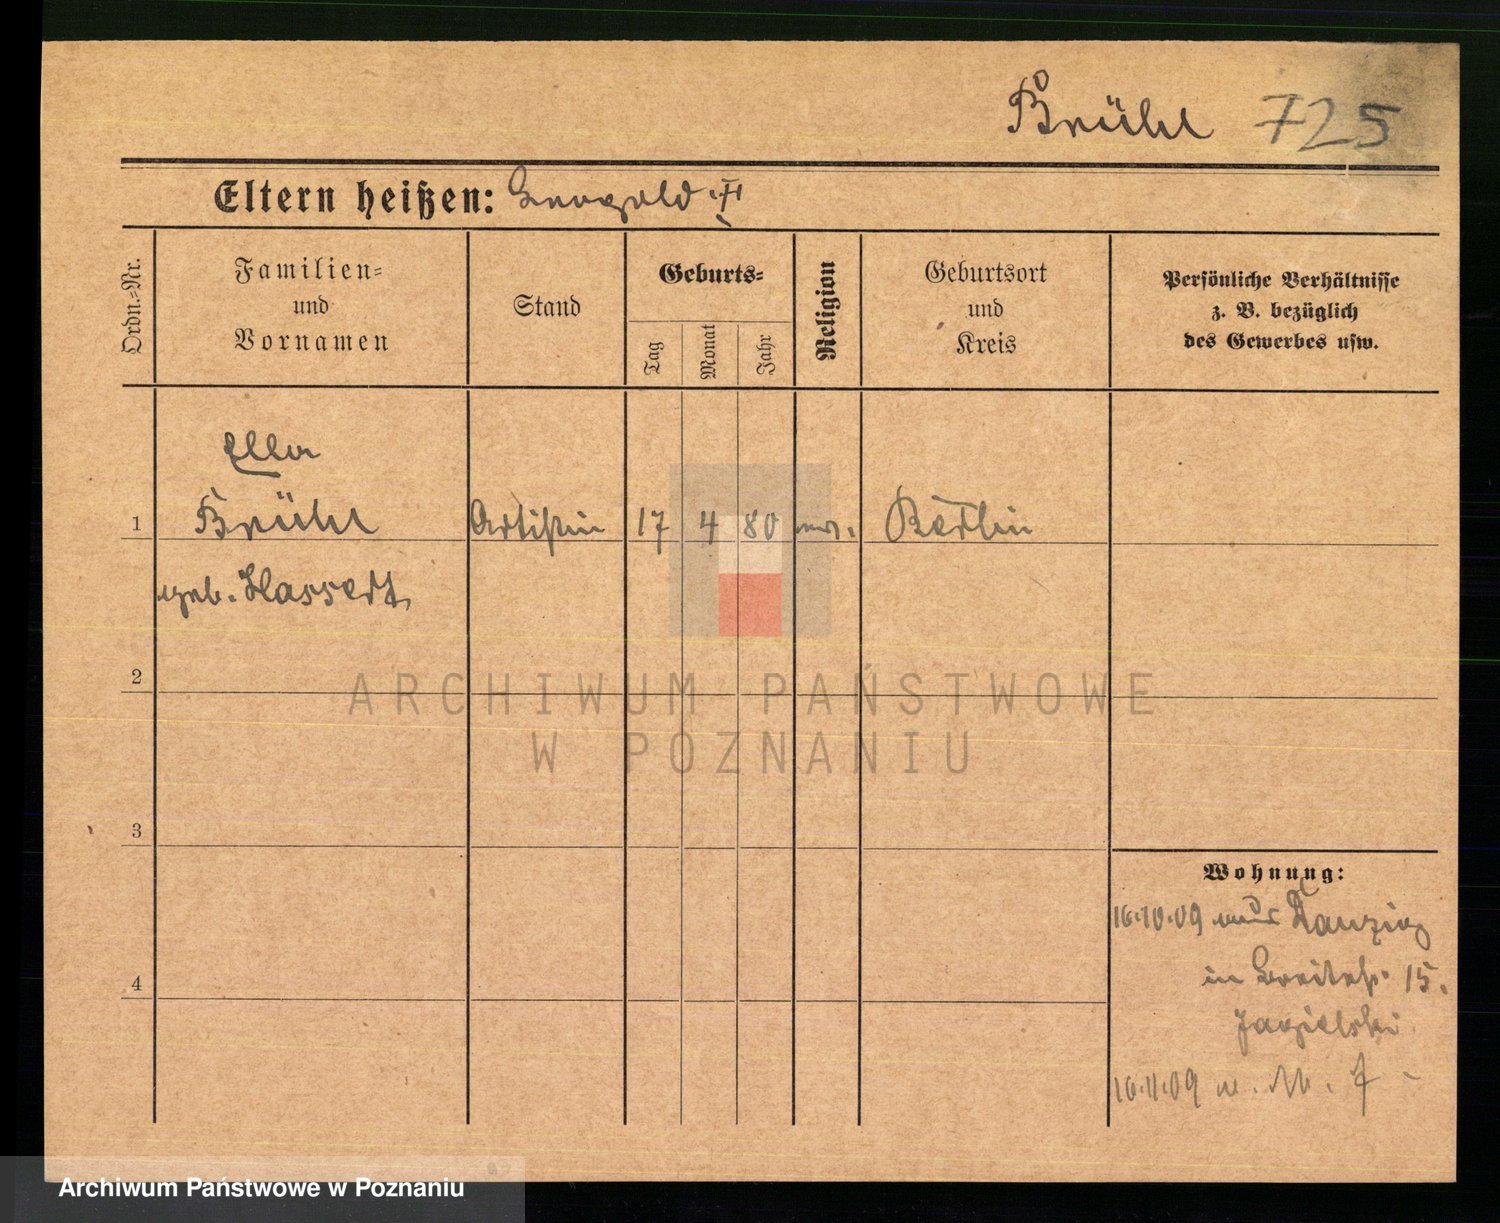 Brühl 725
Eltern heißen: Leopold
Ordn.=Nr.
Familien=
und
Vornamen
Stand
Geburts=
Tag
Monat
Jahr
Religion
Geburtsort
und
Kreis
Persönliche Verhältnisse
z. B. bezüglich
des Gewerbes usw.
Ella
1 Brühl Artistin 17 4 80 Berlin
geb. Hassert
2
3
4
Wohnung:
16.10.09 aus Danzig
in Breitestr. 15.
Jagielski
16.11.09 n.
ARCHIWUM PAŃSTWOWE
W POZNANIU
Archiwum Państwowe w Poznaniu